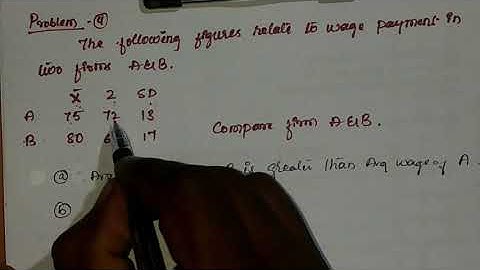 Problem - 4
The following figures relate to wage payment in
two firms A & B.
X̄ Z SD
A 75 72 13
B 80 6 17
Compare firm A & B.
(a) is greater than Avg wage of A.
(b)